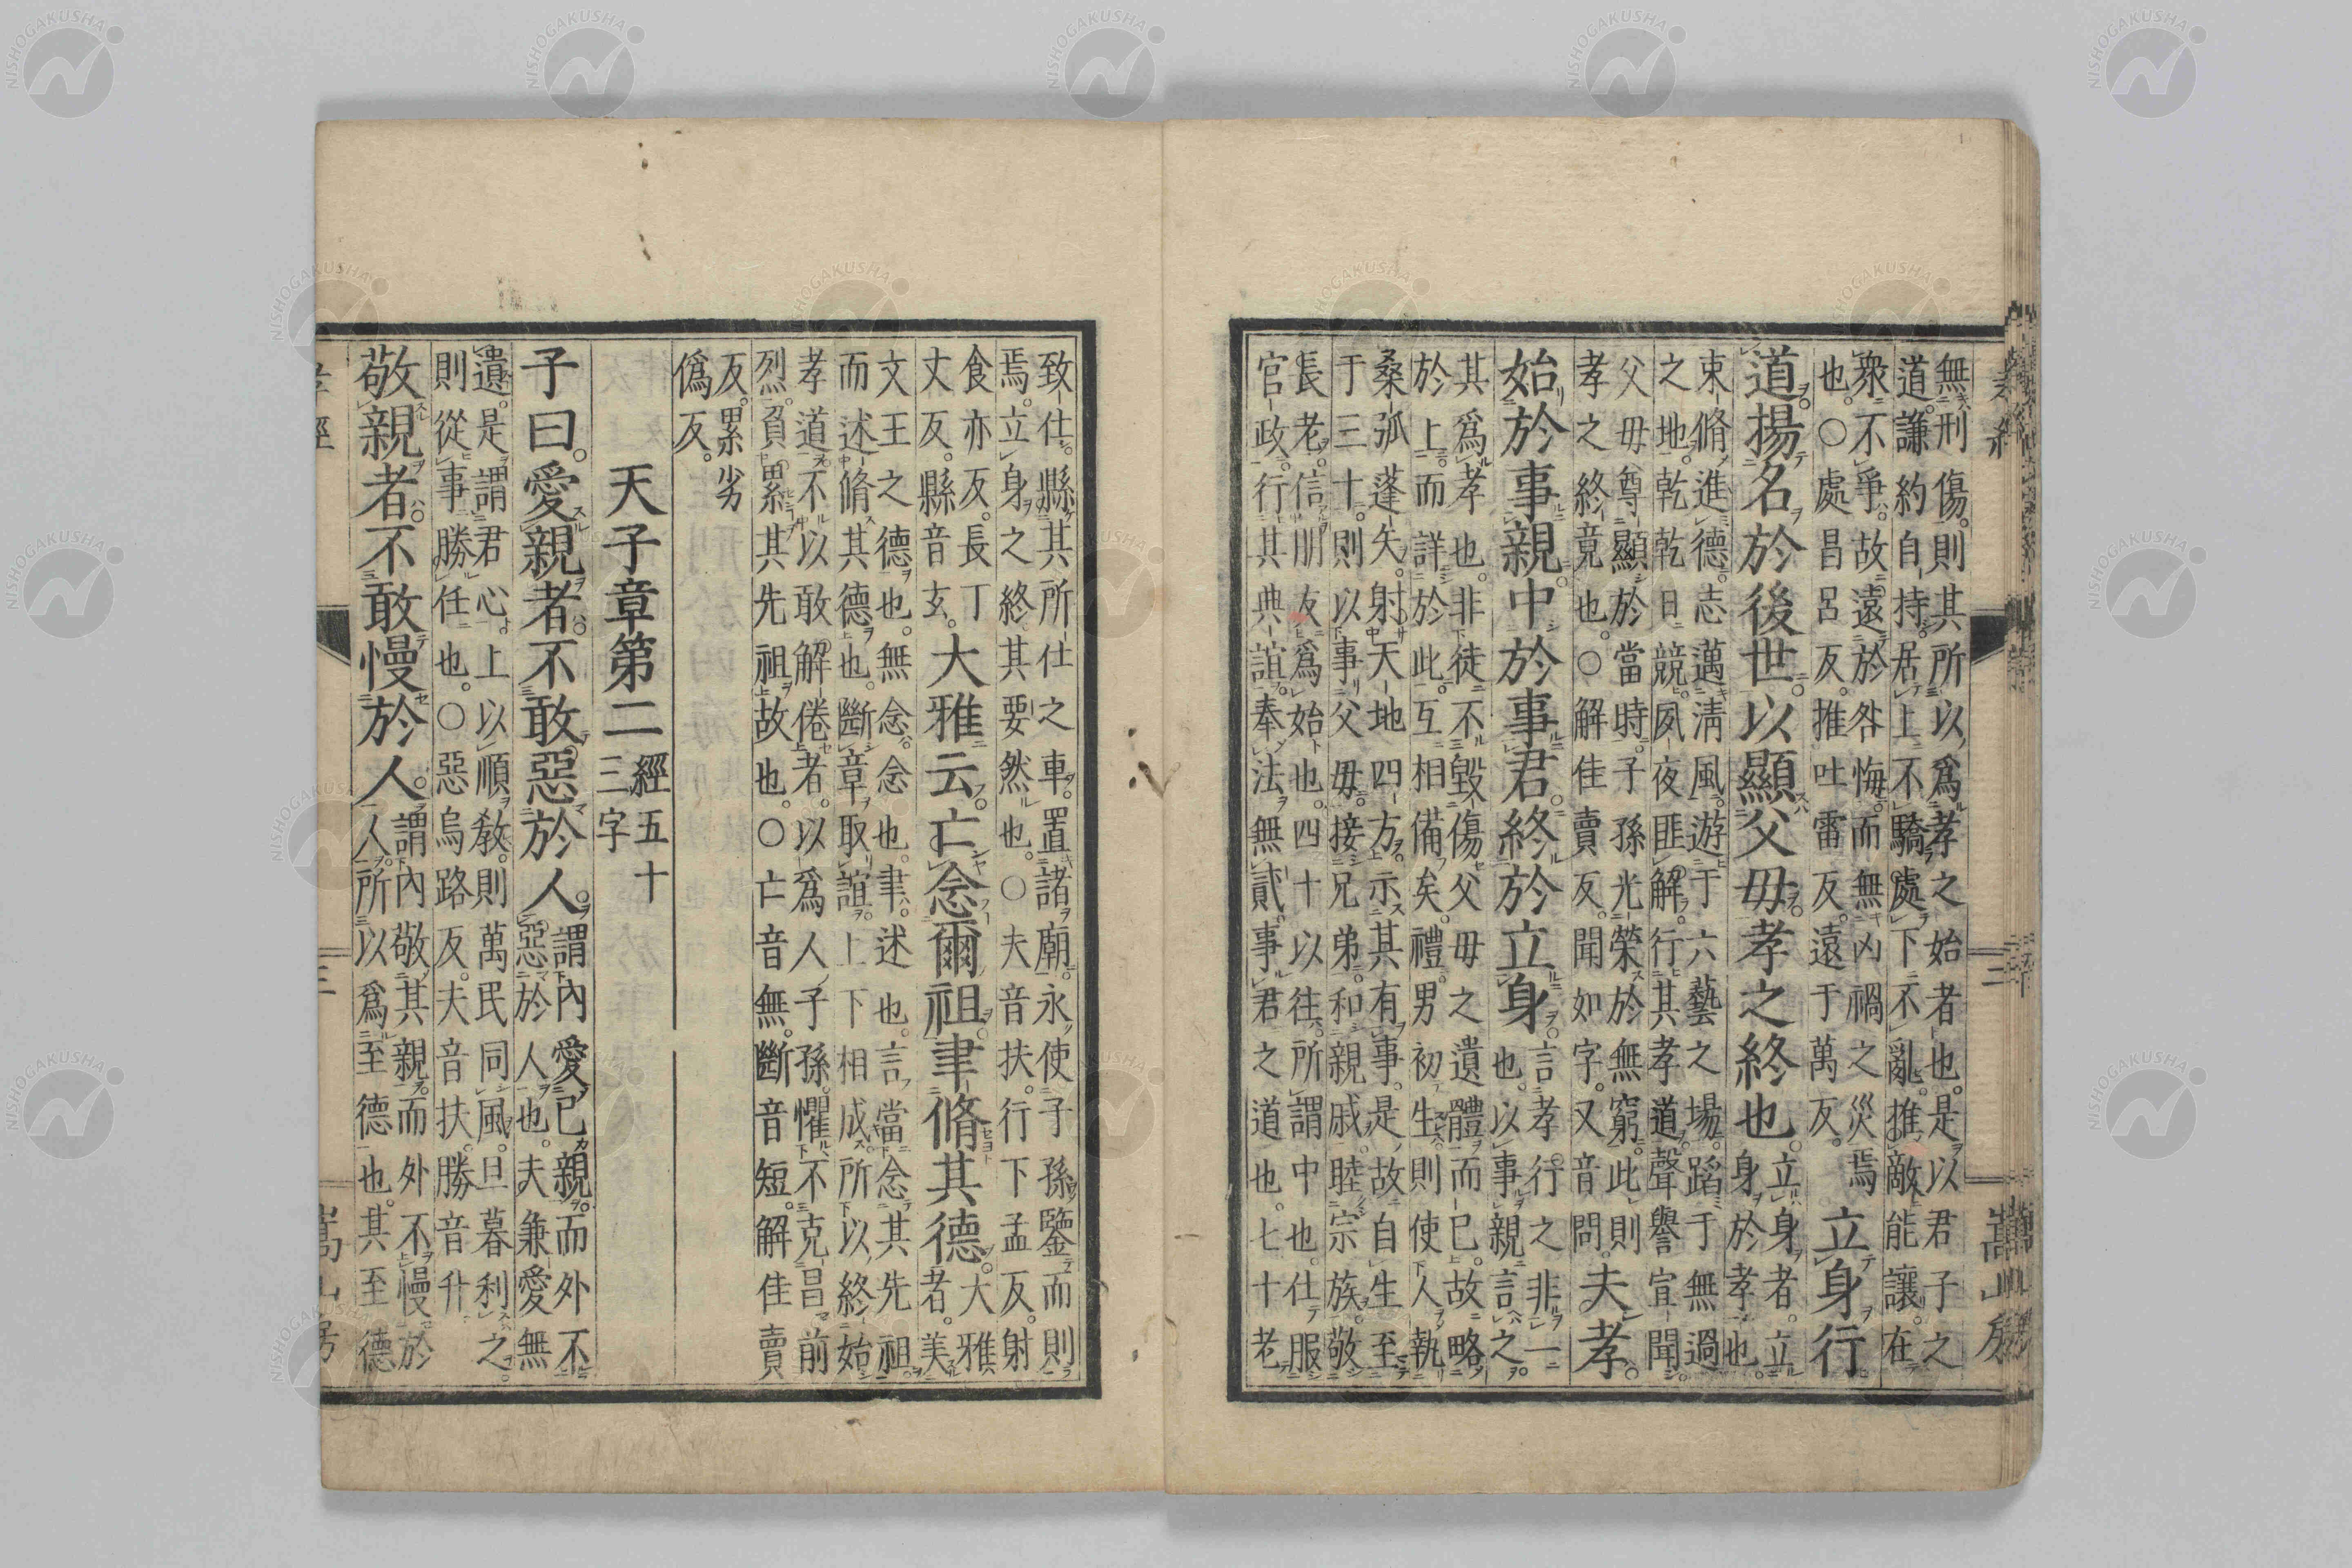 無刑傷。則其所以爲孝之始者也。是以君子之
道。謙約自持。居上不驕。處下不亂。推敵能讓。在
衆不爭。故遠於咎悔。而無凶禍之災焉
也。○處昌呂反。推吐雷反。遠于萬反。
立身行
道。揚名於後世。以顯父母。孝之終也。
立身者。立
身於孝也。
束脩進德。志邁淸風。遊于六藝之場。蹈于無過
之地。乾乾日競。夙夜匪解。行其孝道。聲譽宣聞。
父母尊顯於當時。子孫光榮於無窮。此則
孝之終竟也。○解佳賣反。聞如字。又音問。
夫孝。
始於事親。中於事君。終於立身。
言孝行之非一
也。以事親言之。
其爲孝也。非徒不毀傷父母之遺體而已。故略
於上。而詳於此。互相備矣。禮。男初生。則使人執
桑弧蓬矢。射天地四方。示其有事。是故自生至
于三十。則以事父母。接兄弟。和親戚。睦宗族。敬
長老。信朋友爲始也。四十以往。所謂中也。仕服
官政。行其典誼。奉法無貳。事君之道也。七十老
致仕。縣其所仕之車。置諸廟。永使子孫鑒而則
焉。立身之終。其要然也。○夫音扶。行下孟反。射
食亦反。長丁
丈反。縣音玄。
大雅云。亡念爾祖。聿脩其德。
大雅
者。美
文王之德也。無念。念也。聿。述也。言當念其先祖。
而述脩其德也。斷章取誼。上下相成。所以終始
孝道。不以敢解倦者。以爲人子孫。懼不克昌前
烈。負累其先祖故也。○亡音無。斷音短。解佳賣
反。累劣
僞反。
天子章第二
經五十
三字
子曰。愛親者。不敢惡於人。
謂內愛己親。而外不
惡於人也。夫兼愛無
遺。是謂君心。上以順敎。則萬民同風。旦暮利之。
則從事勝任也。○惡烏路反。夫音扶。勝音升
敬親者。不敢慢於人。
謂內敬其親。而外不慢於
人。所以爲至德也。其至德